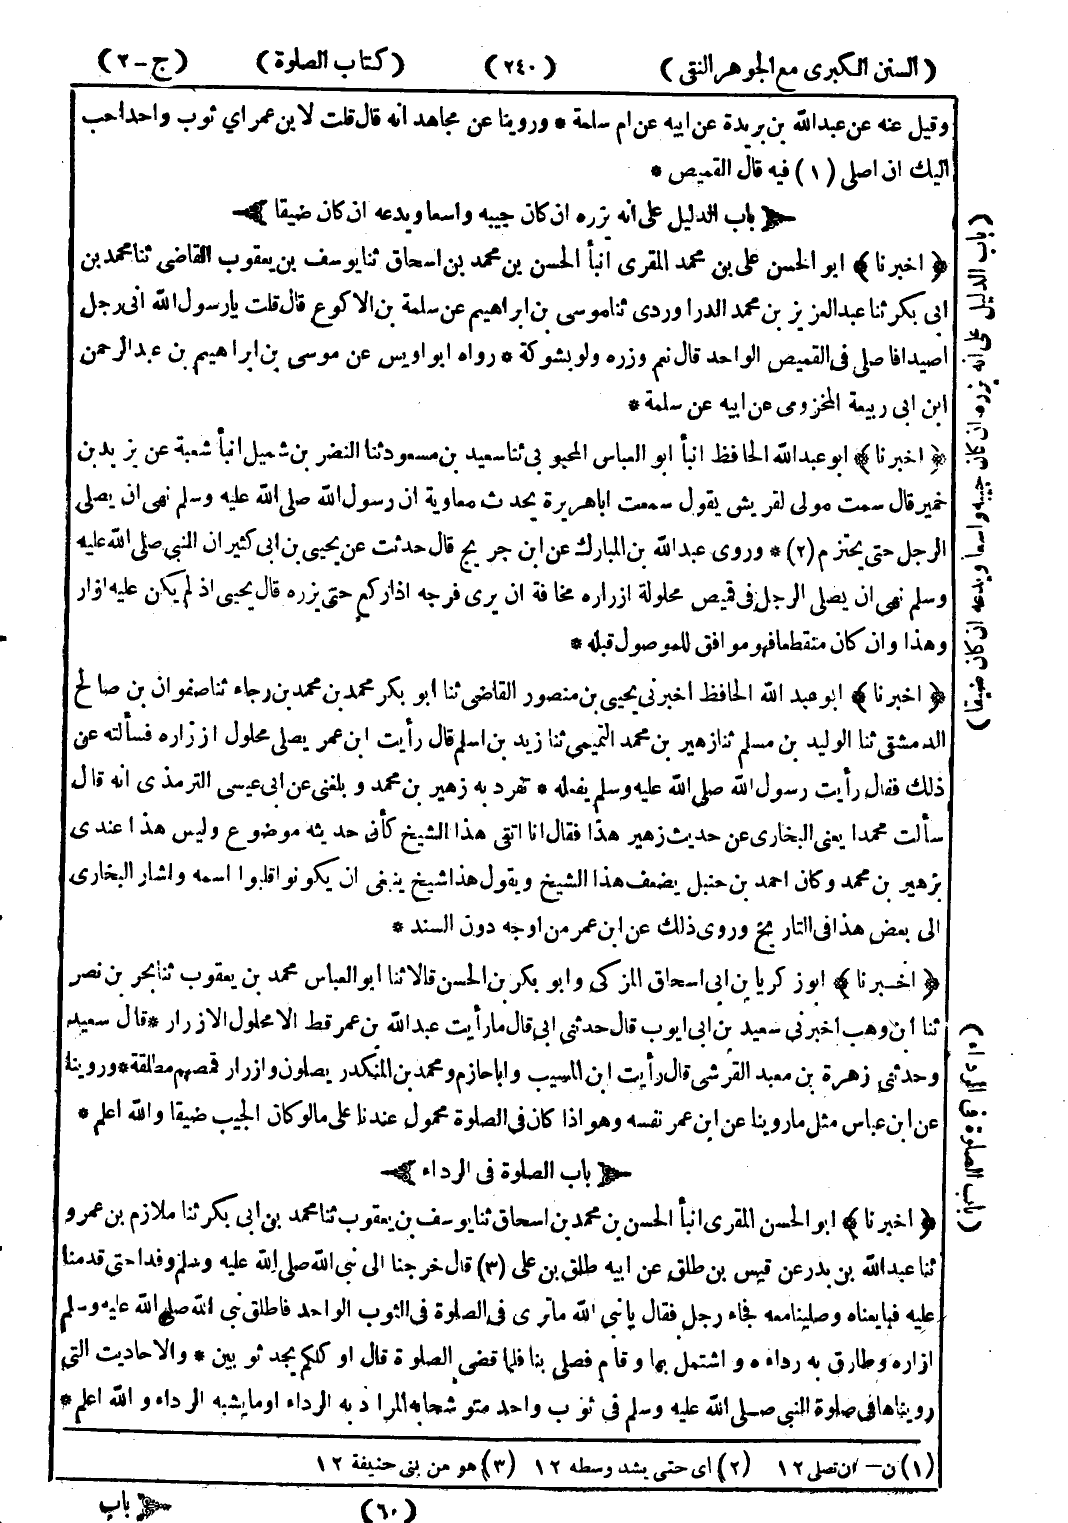 (السنن الكبرى مع الجوهر النقى) (٢٤٠) (كتاب الصلوة) (ج-٢)
وقيل عنه عن عبدالله بن بريدة عن ابيه عن ام سلمة * وروينا عن مجاهد انه قال قلت لابن عمر اي ثوب واحد احب
اليك ان اصلى (١) فيه قال القميص *
باب الدليل على انه يزره ان كان جيبه واسعا ويدعه ان كان ضيقا
﴿اخبرنا﴾ ابو الحسن على بن محمد المقرى انبأ الحسن بن محمد بن اسحاق ثنا يوسف بن يعقوب القاضى ثنا محمد بن
ابى بكر ثنا عبدالعزيز بن محمد الدراوردى ثنا موسى بن ابراهيم عن سلمة بن الاكوع قال قلت يارسول الله انى رجل
اصيد افاصلى فى القميص الواحد قال نعم وزره ولو بشوكة * رواه ابو اويس عن موسى بن ابراهيم بن عبدالرحمن
ابن ابى ربيعة المخزومى عن ابيه عن سلمة *
﴿اخبرنا﴾ ابو عبدالله الحافظ انبأ ابو العباس المحبوبى ثنا سعيد بن مسعود ثنا النضر بن شميل انبأ شعبة عن يزيد بن
خمير قال سمت مولى لقريش يقول سمعت اباهريرة يحدث معاوية ان رسول الله صلى الله عليه وسلم نهى ان يصلى
الرجل حتى يحتزم (٢) * وروى عبدالله بن المبارك عن ابن جريج قال حدثت عن يحيى بن ابى كثير ان النبى صلى الله عليه
وسلم نهى ان يصلى الرجل فى قميص محلولة ازراره مخافة ان يرى فرجه اذا ركع حتى يزره قال يحيى اذ لم يكن عليه ازار
وهذا وان كان منقطعا فهو موافق للموصول قبله *
﴿اخبرنا﴾ ابو عبد الله الحافظ اخبرنى يحيى بن منصور القاضى ثنا ابو بكر محمد بن محمد بن رجاء ثنا صفوان بن صالح
الدمشقى ثنا الوليد بن مسلم ثنا زهير بن محمد التميمى ثنا زيد بن اسلم قال رأيت ابن عمر يصلى محلول ازراره فسألته عن
ذلك فقال رأيت رسول الله صلى الله عليه وسلم يفعله * تفرد به زهير بن محمد وبلغنى عن ابى عيسى الترمذى انه قال
سألت محمدا يعنى البخارى عن حديث زهير هذا فقال انا اتقى هذا الشيخ كأن حديثه موضوع وليس هذا عندى
بزهير بن محمد وكان احمد بن حنبل يضعف هذا الشيخ ويقول هذا شيخ ينبغى ان يكونوا قلبوا اسمه واشار البخارى
الى بعض هذا فى التاريخ وروى ذلك عن ابن عمر من اوجه دون السند *
﴿اخبرنا﴾ ابو زكريا بن ابى اسحاق المزكى وابو بكر بن الحسن قالا ثنا ابو العباس محمد بن يعقوب ثنا بحر بن نصر
ثنا ابن وهب اخبرنى سعيد بن ابى ايوب قال حدثنى ابى قال مارأيت عبدالله بن عمر قط الا محلول الازرار * قال سعيد
وحدثنى زهرة بن معبد القرشى قال رأيت ابن المسيب واباحازم ومحمد بن المنكدر يصلون وازرار قمصهم مطلقة * وروينا
عن ابن عباس مثل ماروينا عن ابن عمر نفسه وهو اذا كان فى الصلوة محمول عندنا على مالو كان الجيب ضيقا والله اعلم *
باب الصلوة فى الرداء
﴿اخبرنا﴾ ابو الحسن المقرى انبأ الحسن بن محمد بن اسحاق ثنا يوسف بن يعقوب ثنا محمد بن ابى بكر ثنا ملازم بن عمرو
ثنا عبدالله بن بدر عن قيس بن طلق عن ابيه طلق بن على (٣) قال خرجنا الى نبى الله صلى الله عليه وسلم وفدا حتى قدمنا
عليه فبايعناه وصلينا معه فجاء رجل فقال يانبى الله ماترى فى الصلوة فى الثوب الواحد فاطلق نبى الله صلى الله عليه وسلم
ازاره وطارق به رداءه واشتمل بها وقام فصلى بنا فلما قضى الصلوة قال او كلكم يجد ثوبين * والاحاديث التى
رويناها فى صلوة النبى صلى الله عليه وسلم فى ثوب واحد متوشحابه المراد به الرداء اومايشبه الرداء والله اعلم *
(١) ن- ان تصلى ١٢ (٢) اى حتى يشد وسطه ١٢ (٣) هو من بنى حنيفة ١٢
(٦٠) باب
(باب الدليل على انه يزره ان كان جيبه واسعا ويدعه ان كان ضيقا)
(باب الصلوة فى الرداء)